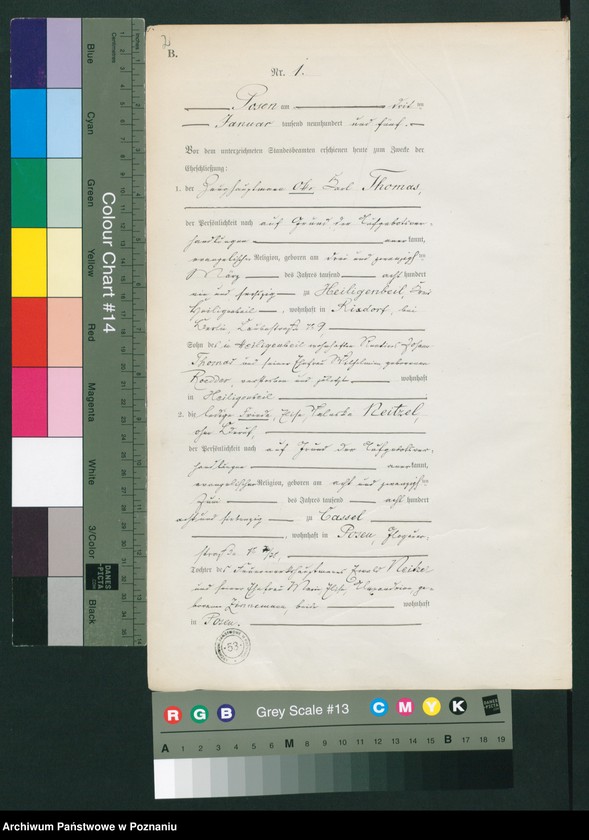 B.
Nr. 1.
Posen am dritten
Januar tausend neunhundert und fünf.
Vor dem unterzeichneten Standesbeamten erschienen heute zum Zwecke der
Eheschließung:
1. der Karl Thomas,
der Persönlichkeit nach auf Grund der Aufgebotsver-
handlungen anerkannt,
evangelischer Religion, geboren am drei und zwanzigsten
März des Jahres tausend acht hundert
und sechzig zu Heiligenbeil, Kreis
Heiligenbeil, wohnhaft in Rixdorf, bei
Berlin, 9
Sohn des in Heiligenbeil Rentiers
Thomas und seiner Ehefrau Wilhelmine geborenen
Roedder, verstorben und zuletzt wohnhaft
in Heiligenbeil
2. die ledige Frieda, Else, Valeska Neitzel,
ohne Beruf,
der Persönlichkeit nach auf Grund der Aufgebotsver-
handlungen anerkannt,
evangelischer Religion, geboren am acht und zwanzigsten
Juni des Jahres tausend acht hundert
acht und siebenzig zu Cassel
, wohnhaft in Posen,
straße N.
Tochter des Feuerwerkshauptmanns Neitzel
und seiner Ehefrau Marie Else, ge-
borenen Zinnemann, beide wohnhaft
in Posen.
53
Blue
Cyan
Green
Yellow
Red
Magenta
White
3/Color
Black
Colour Chart #14
Centimetres
Inches
DANES
-PICTA
R G B Grey Scale #13 C M Y K
A 1 2 3 4 5 6 M 7 8 9 10 11 12 13 14 15 B 16 17 18 19
Archiwum Państwowe w Poznaniu